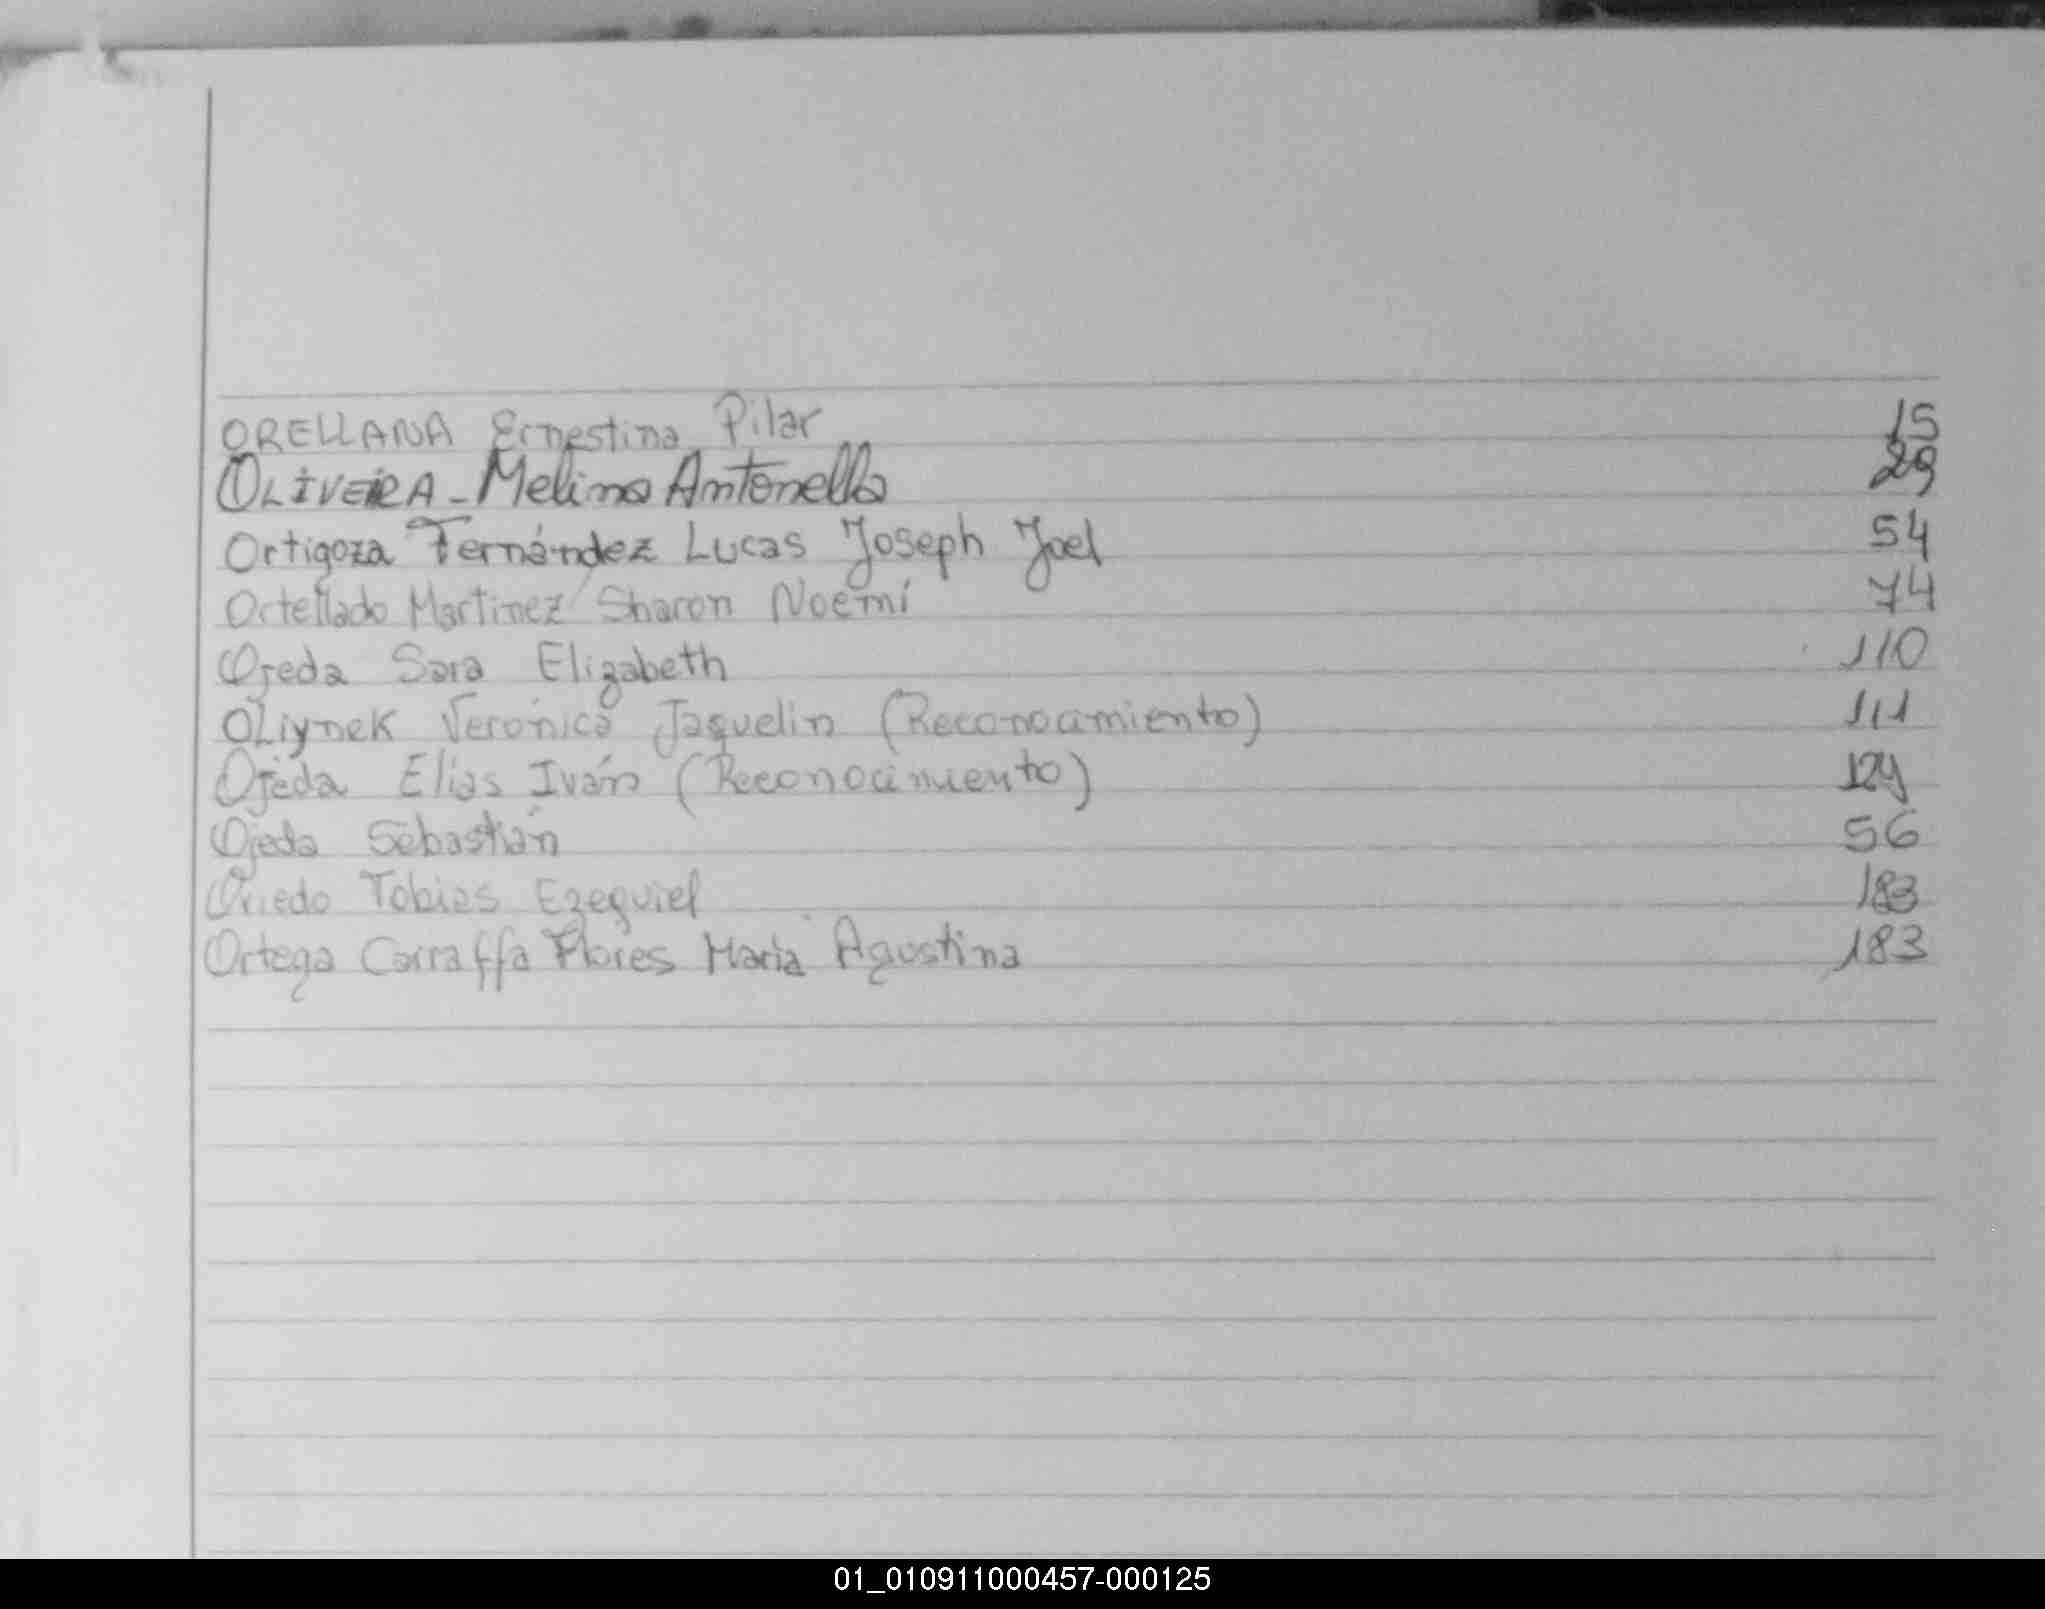 ORELLANA Ernestina Pilar 15
OLIVEIRA - Melina Antonella 29
Ortigoza Fernández Lucas Joseph Joel 54
Ortellado Martinez Sharon Noemí 74
Ojeda Sara Elizabeth 110
OLiynek Verónica Jaquelin (Reconocimiento) 111
Ojeda Elias Iván (Reconocimiento)
Ojeda Sebastián 56
Oviedo Tobias Ezequiel 183
Ortega Carraffa Flores Maria Agustina 183
01_010911000457-000125